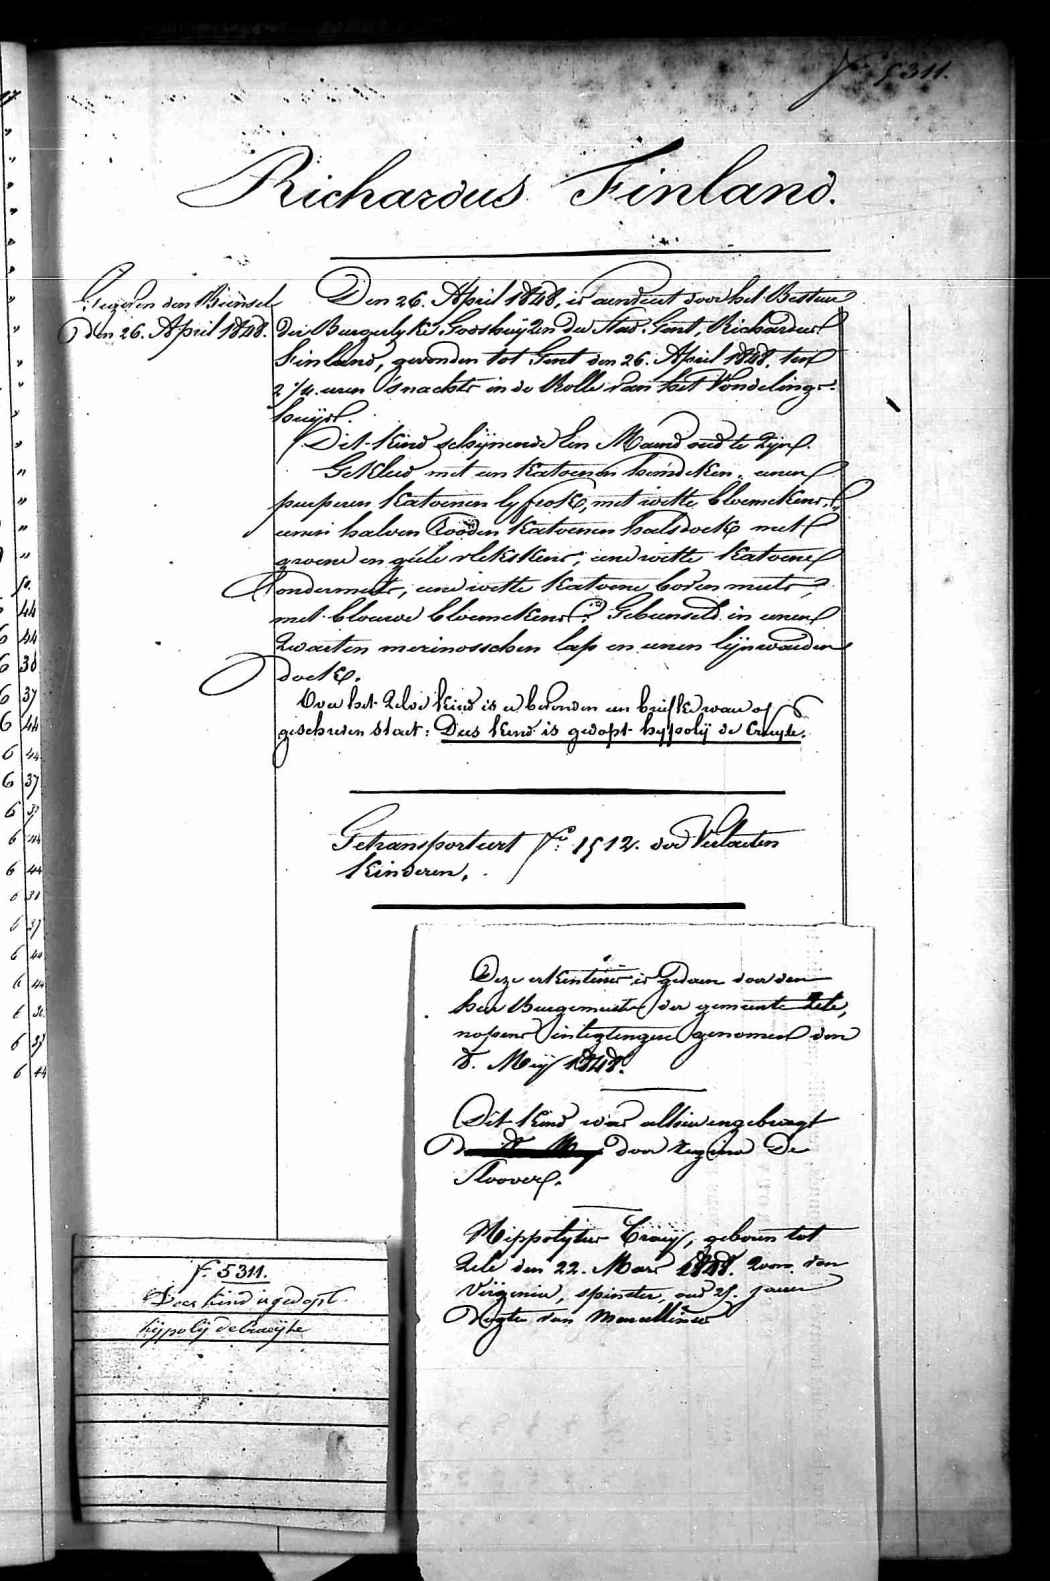 f° 5311.
Richardus Finland.
Gegeven den Biensel
Den 26. April 1848.
Den 26. April 1848, is aenveert door het Bestuer
der Burgerlyke Godshuyzen der stad Gent, Richardus
Finland, gevonden tot Gent den 26. April 1848. ten
2 1/4 uren snachts in de Rolle van het Vondelings-
huijs.
Dit kind schijnende een Maend oud te zijn.
Gekleed met een katoenen hemdeken, eenen
purperen katoenen lyfrok, met witte bloemekens,
eenen halven rooden katoenen halsdoek met
groene en geele vlekskens, eene witte katoene
ondermuts, eene witte katoene bovenmuts,
met blouwe bloemekens. Gebunseld in eenen
zwarten merinosschen lap en eenen lijnwaeden
doek.
Over het zelve kind is er bevonden een briefke waer op
geschreven staet: Dees kend is gedopt hyppolij de Cruyte.
Getransporteert f° 1512. der Verlaeten
kinderen.
Deze erkentenis is gedaen door den
heer Burgemeester der gemeente Zele,
nopens inligtingen genomen den
8. Meij 1848.
Dit kind was alhier ingebragt
door Regina De
Stoover.
Hippolytus Cruy, geboren tot
Zele den 22. Mars 1848. zoon van
Virginia, spinster, oud 25. jaeren
Dogter van Marcellinus
f° 5311.
Dees kind is gedopt
hijpolij de Cruijte
6 44
6 44
6 38
6 37
6 44
6 44
6 37
6 37
6 44
6 44
6 38
6 37
6 44
6 44
6 37
6 44